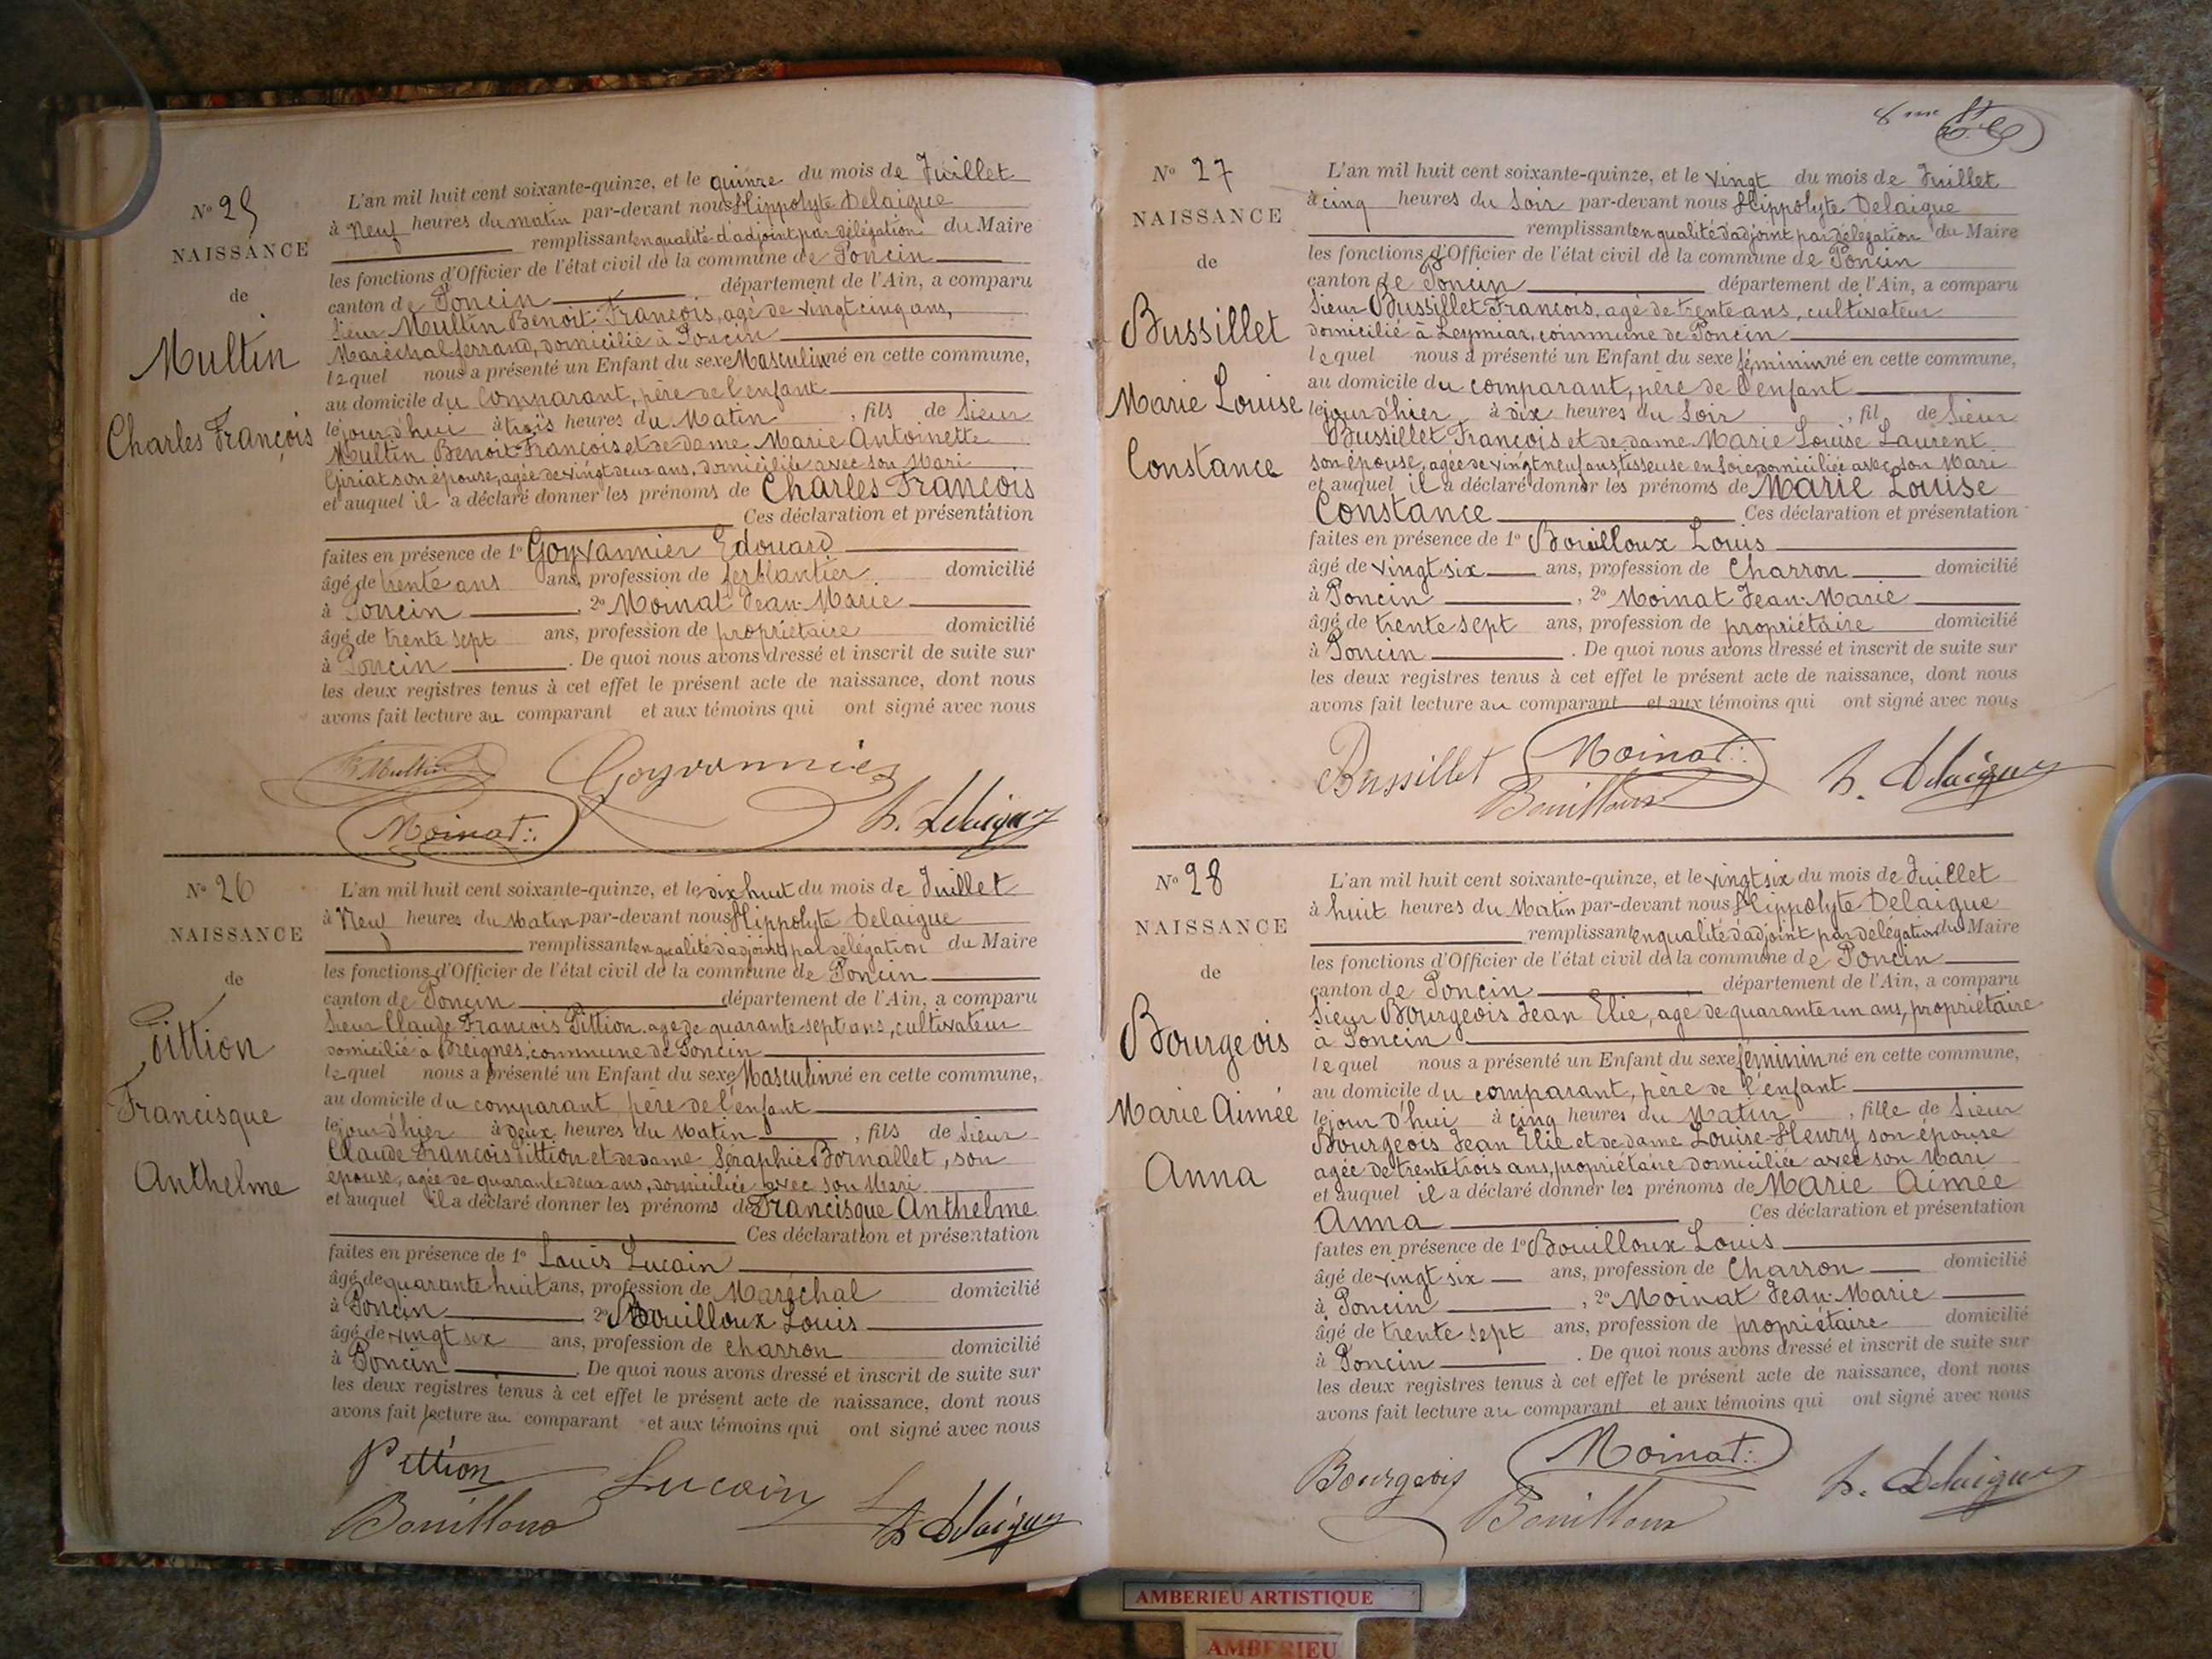 Nº 25
NAISSANCE
de
Multin
Charles François
L'an mil huit cent soixante-quinze, et le quinze du mois de Juillet
à Neuf heures du matin par-devant nous Hippolyte Delaigue
remplissant en qualité d'adjoint par délégation du Maire
les fonctions d'Officier de l'état civil de la commune de Poncin
canton de Poncin département de l'Ain, a comparu
Sieur Multin Benoit-François, agé de vingt cinq ans,
Maréchal ferrand, domicilié à Poncin
lequel nous a présenté un Enfant du sexe Masculin né en cette commune,
au domicile du Comparant, père de l'enfant
le jour d'hui à trois heures du Matin, fils de Sieur
Multin Benoit-François et de dame Marie Antoinette
Giriat son épouse, agée de vingt deux ans, domiciliée avec son Mari
et auquel il a déclaré donner les prénoms de Charles-François
Ces déclaration et présentation
faites en présence de 1º Goyvannier Edouard
âgé de trente ans ans, profession de ferblantier domicilié
à Poncin, 2º Moinat Jean-Marie
âgé de trente sept ans, profession de propriétaire domicilié
à Poncin. De quoi nous avons dressé et inscrit de suite sur
les deux registres tenus à cet effet le présent acte de naissance, dont nous
avons fait lecture au comparant et aux témoins qui ont signé avec nous
B Multin Goyvannier
Moinat h. Delaigue
Nº 26
NAISSANCE
de
Pittion
Francisque
Anthelme
L'an mil huit cent soixante-quinze, et le dix huit du mois de Juillet
à Neuf heures du Matin par-devant nous Hippolyte Delaigue
remplissant en qualité d'adjoint par délégation du Maire
les fonctions d'Officier de l'état civil de la commune de Poncin
canton de Poncin département de l'Ain, a comparu
Sieur Claude François Pittion, agé de quarante sept ans, cultivateur
domicilié à Breignes, commune de Poncin
lequel nous a présenté un Enfant du sexe Masculin né en cette commune,
au domicile du comparant, père de l'enfant
le jour d'hier à deux heures du Matin, fils de Sieur
Claude François Pittion et de dame Séraphie Bornallet, son
épouse, agée de quarante deux ans, domiciliée avec son Mari
et auquel il a déclaré donner les prénoms de Francisque Anthelme
Ces déclaration et présentation
faites en présence de 1º Louis Lucain
âgé de quarante huit ans, profession de Maréchal domicilié
à Poncin 2º Bouilloux Louis
âgé de vingt six ans, profession de charron domicilié
à Poncin. De quoi nous avons dressé et inscrit de suite sur
les deux registres tenus à cet effet le présent acte de naissance, dont nous
avons fait lecture au comparant et aux témoins qui ont signé avec nous
Pittion Lucain
Bouilloux h Delaigue
8me
Nº 27
NAISSANCE
de
Bussillet
Marie Louise
Constance
L'an mil huit cent soixante-quinze, et le vingt du mois de Juillet
à cinq heures du Soir par-devant nous Hippolyte Delaigue
remplissant en qualité d'adjoint par délégation du Maire
les fonctions d'Officier de l'état civil de la commune de Poncin
canton de Poncin département de l'Ain, a comparu
Sieur Bussillet François, agé de trente ans, cultivateur
domicilié à Leymiar, commune de Poncin
lequel nous a présenté un Enfant du sexe féminin né en cette commune,
au domicile du comparant, père de l'enfant
le jour d'hier à dix heures du Soir, fil de Sieur
Bussillet François et de dame Marie Louise Laurent
son épouse, agée de vingt neuf ans tisseuse en soie domiciliée avec son Mari
et auquel il a déclaré donner les prénoms de Marie Louise
Constance Ces déclaration et présentation
faites en présence de 1º Bouilloux Louis
âgé de vingt six ans, profession de Charron domicilié
à Poncin, 2º Moinat Jean-Marie
âgé de trente sept ans, profession de propriétaire domicilié
à Poncin. De quoi nous avons dressé et inscrit de suite sur
les deux registres tenus à cet effet le présent acte de naissance, dont nous
avons fait lecture au comparant et aux témoins qui ont signé avec nous
Bussillet Moinat h. Delaigue
Bouilloux
Nº 28
NAISSANCE
de
Bourgeois
Marie Aimée
Anna
L'an mil huit cent soixante-quinze, et le vingt six du mois de Juillet
à huit heures du Matin par-devant nous Hippolyte Delaigue
remplissant en qualité d'adjoint par délégation du Maire
les fonctions d'Officier de l'état civil de la commune de Poncin
canton de Poncin département de l'Ain, a comparu
Sieur Bourgeois Jean Elie, agé de quarante un ans, propriétaire
à Poncin
lequel nous a présenté un Enfant du sexe féminin né en cette commune,
au domicile du comparant, père de l'enfant
le jour d'hui à cinq heures du Matin, fille de Sieur
Bourgeois Jean Elie et de dame Louise-Henry son épouse
agée de trente trois ans, propriétaire domiciliée avec son Mari
et auquel il a déclaré donner les prénoms de Marie Aimée
Anna Ces déclaration et présentation
faites en présence de 1º Bouilloux Louis
âgé de vingt six ans, profession de Charron domicilié
à Poncin, 2º Moinat Jean-Marie
âgé de trente sept ans, profession de propriétaire domicilié
à Poncin. De quoi nous avons dressé et inscrit de suite sur
les deux registres tenus à cet effet le présent acte de naissance, dont nous
avons fait lecture au comparant et aux témoins qui ont signé avec nous
Bourgeois Moinat h. Delaigue
Bouilloux
AMBERIEU ARTISTIQUE
AMBERIEU